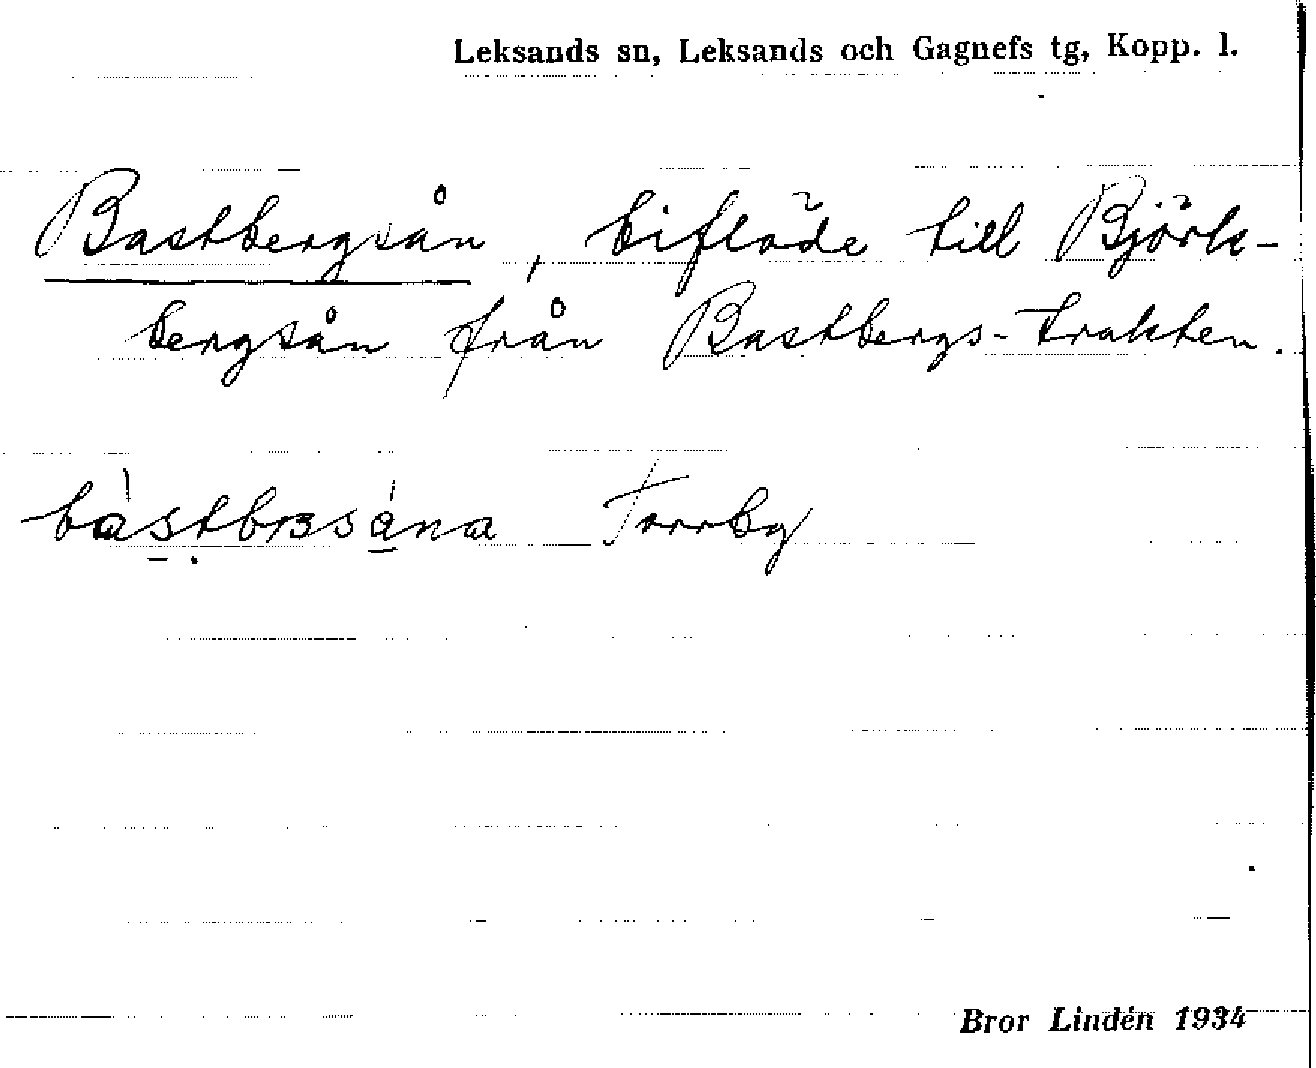 Leksands sn, Leksands och Gagnefs tg, Kopp. l.
Bastbergsån, biflöde till Björk-
bergsån från Bastbergs-trakten.
Bror Lindén 1934